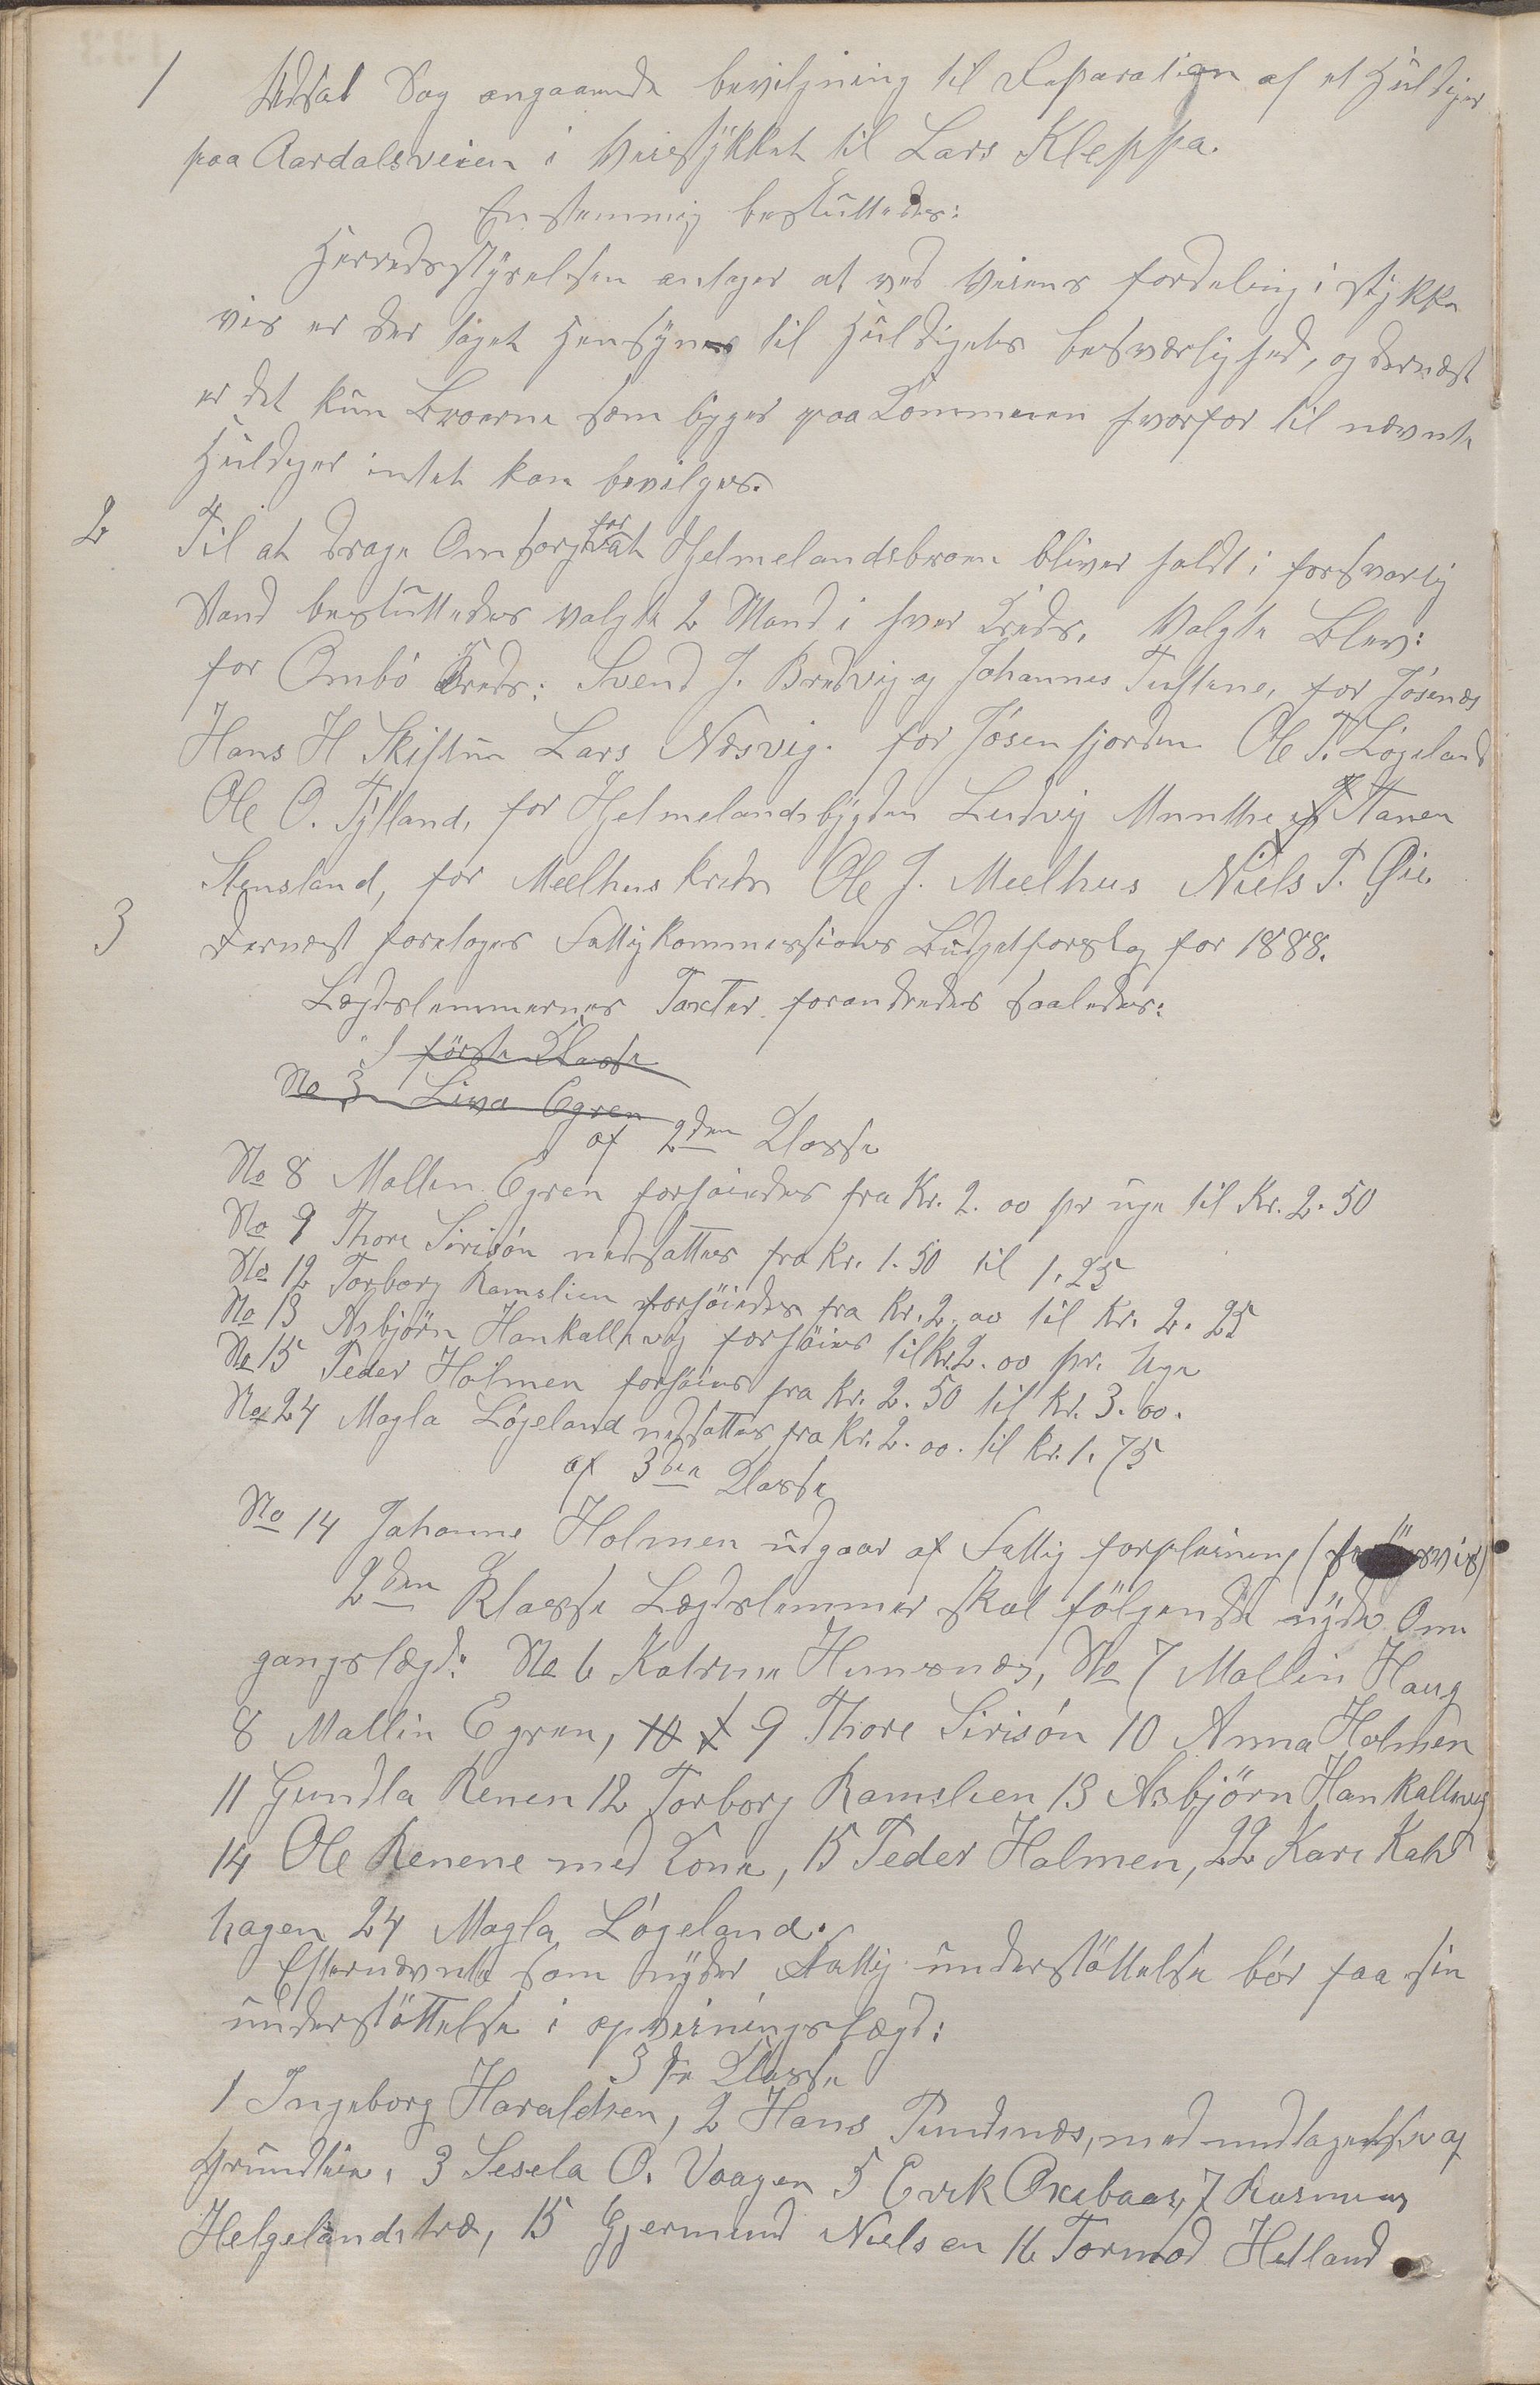 1 Udsat Sag angaaende beviljning til Reparation af et Huldiger
paa Aardalsveien i Veistykket til Lars Kleppa.
Enstemmig besluttedes:
Herredsstyrelsen antager at ved Veiens fordeling i stykke
vis er der taget Hensyn til Huldigets besværlighed, og dernæst
er det kun Broerne som ligger paa Kommunen hvorfor til nævnte
Huldiger intet kan beviljes.
2 Til at drage Omsorg for at Hjelmelandsbroen bliver holdt i forsvarlig
Stand besluttedes valgte 2 Mand i hver Kreds. Valgte Blev:
for Ombö Kreds: Svend J. Bredvig og Johannes Tuftene, for Jösenes
Hans H Skiftun Lars Nesvig. for Jösenfjorden Ole T. Lögeland
Ole O. Tytland, for Hjelmelandsbygden Ludvig Munthe
Stensland, for Meelhus kreds Ole J. Meelhus Niels T. Øie.
3 Dernæst foretoges Fattigkommissions Budgetforslag for 1888.
Lægdslemmernes Taxter forandredes saaledes:
I förste Klasse
No 3 Liva Egren
af 2den Klasse
No 8 Mallin Egren forhöiedes fra Kr. 2.00 pr uge til Kr. 2.50
No 9 Thore Sirisön nedsattes fra Kr. 1.50 til 1.25
No 12 Torborg Ramslien forhöiedes fra Kr. 2.00 til Kr. 2.25
No 13 Asbjörn Hankallevig forhöies til Kr. 2.00 pr. Uge
No 15 Peder Holmen forhöies fra Kr. 2.50 til Kr. 3.00.
No 24 Magla Lögeland nedsattes fra Kr. 2.00. til Kr. 1.75
af 3die Klasse
No 14 Johanne Holmen udgaar af Fattig forpleining
2den Klasse Lægdslemmer skal fölgende nyde Om
gangslægd: No 6 Katrine Humsnes, No 7 Mallin Haug
8 Mallin Egren, 9 Thore Sirisön 10 Anna Holmen
11 Gundla Renen 12 Torborg Ramslien 13 Asbjörn Hankallevig
14 Ole Renene med Kone, 15 Peder Holmen, 22 Kari Kalv
hagen 24 Magla Lögeland.
Efternævnte som nyder Fattig understöttelse bör faa sin
understöttelse i opveiningslægd:
3die Klasse
1 Ingeborg Haraldsen, 2 Hans Pundsnes, med undtagelse af
Grundleie, 3 Sesela O. Vaagen 5 Erik Oxebaas, 7 Rasmus
Helgelandstræ, 15 Gjermund Nielsen 16 Tormod Hetland